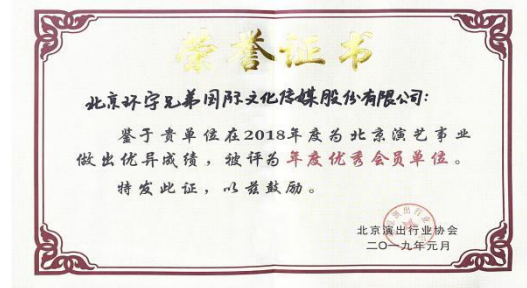 荣誉证书
北京环宇兄弟国际文化传媒股份有限公司:
鉴于贵单位在2018年度为北京演艺事业
做出优异成绩，被评为年度优秀会员单位。
特发此证，以兹鼓励。
北京演出行业协会
二〇一九年元月